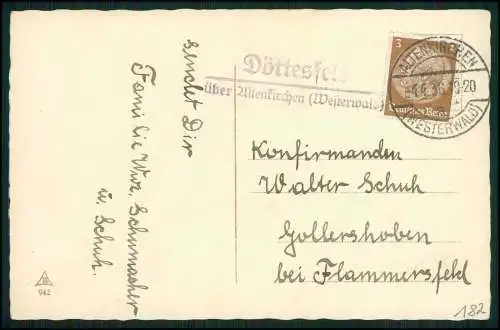 sendet Dir
Familie Wwe. Schumacher
u. Schuh.
Döttesfeld
über Altenkirchen (Westerwald)
ALTENKIRCHEN
(WESTERWALD)
3
Deutsches Reich
Konfirmanden
Walter Schuh
Gollershoben
bei Flammersfeld
942
182